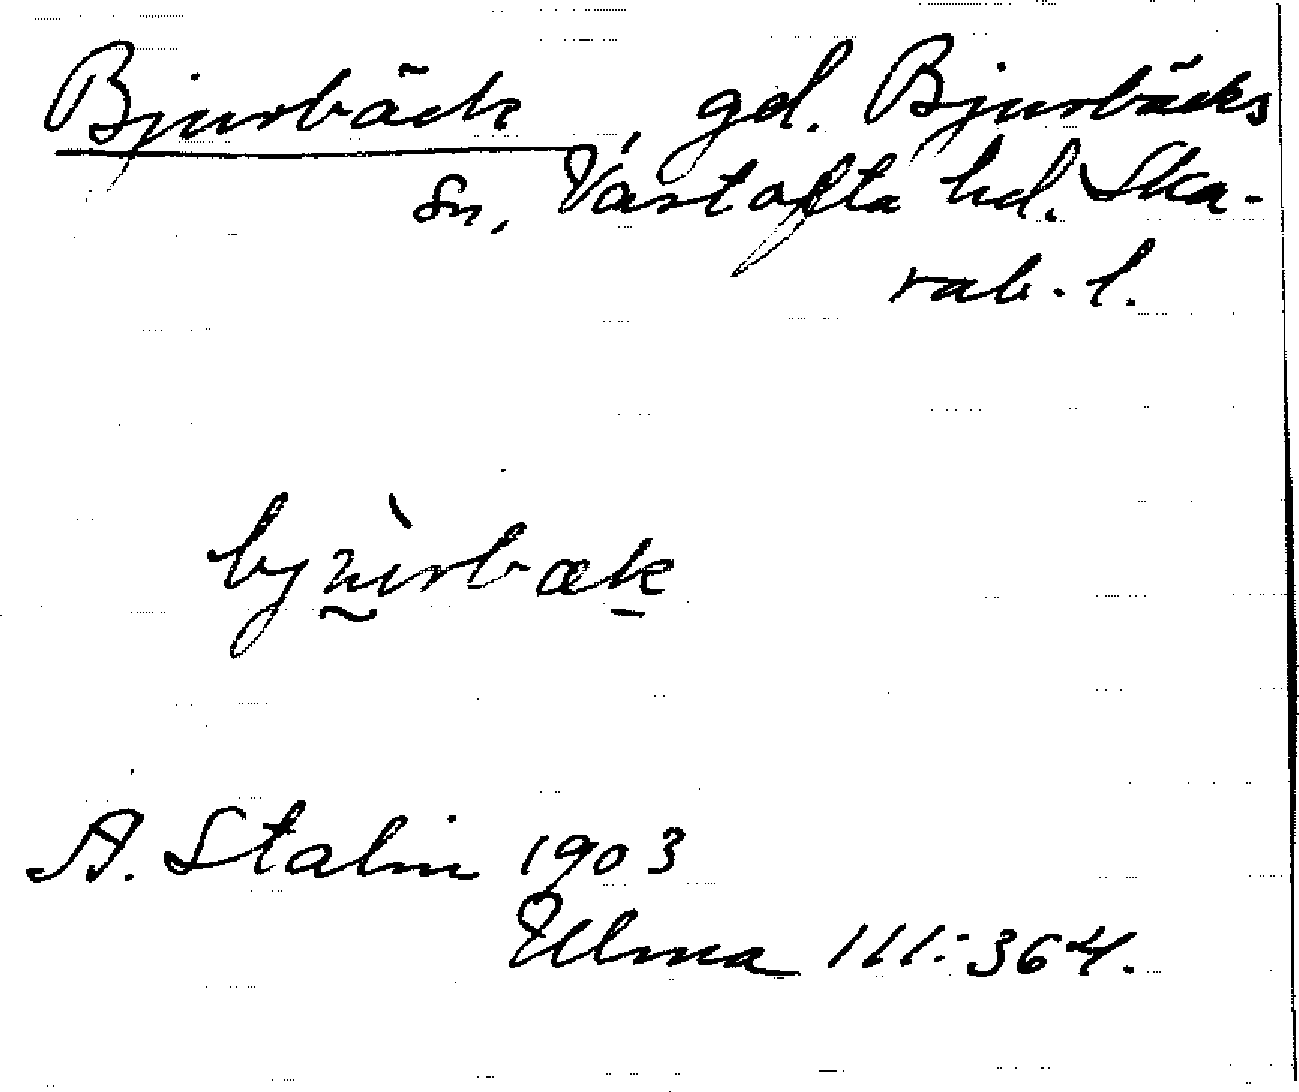 Bjurbäck, gd. Bjurbäcks
sn, Vartofta hd. Ska-
rab. l.
A. Stalin 1903
Ulma 111:364.